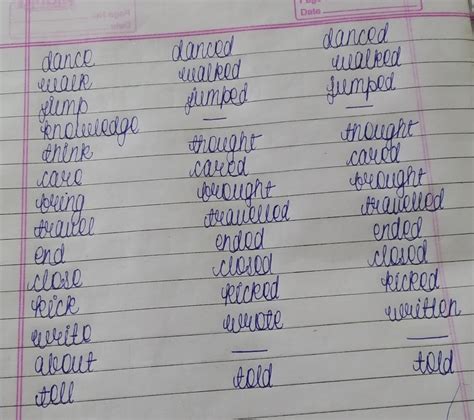 Date
dance danced danced
walk walked walked
jump jumped jumped
knowledge — —
think thought thought
care cared cared
bring brought brought
travel travelled travelled
end ended ended
close closed closed
kick kicked kicked
write wrote written
about — —
tell told told